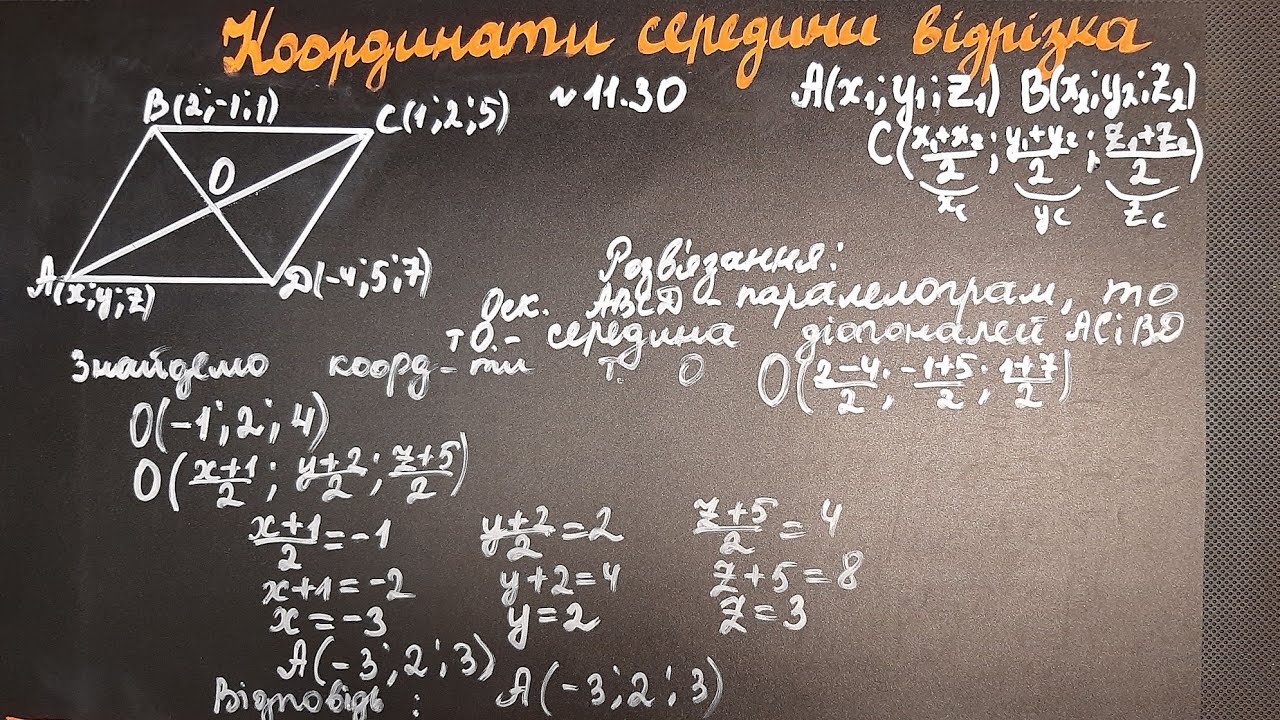 Координати середини відрізка
B(2;-1;1) C(1;2;5) ~11.30 A(x₁;y₁;z₁) B(x₂;y₂;z₂)
O
C((x₁+x₂)/2; (y₁+y₂)/2; (z₁+z₂)/2)
x_c y_c z_c
A(x;y;z) D(-4;5;7)
Розв'язання:
Оск. ABCD - паралелограм, то
т O. - середина діагоналей AC і BD
Знайдемо коорд-ти т. O O((2-4)/2; (-1+5)/2; (1+7)/2)
O(-1;2;4)
O((x+1)/2; (y+2)/2; (z+5)/2)
(x+1)/2=-1 (y+2)/2=2 (z+5)/2=4
x+1=-2 y+2=4 z+5=8
x=-3 y=2 z=3
A(-3;2;3)
Відповідь: A(-3;2;3)